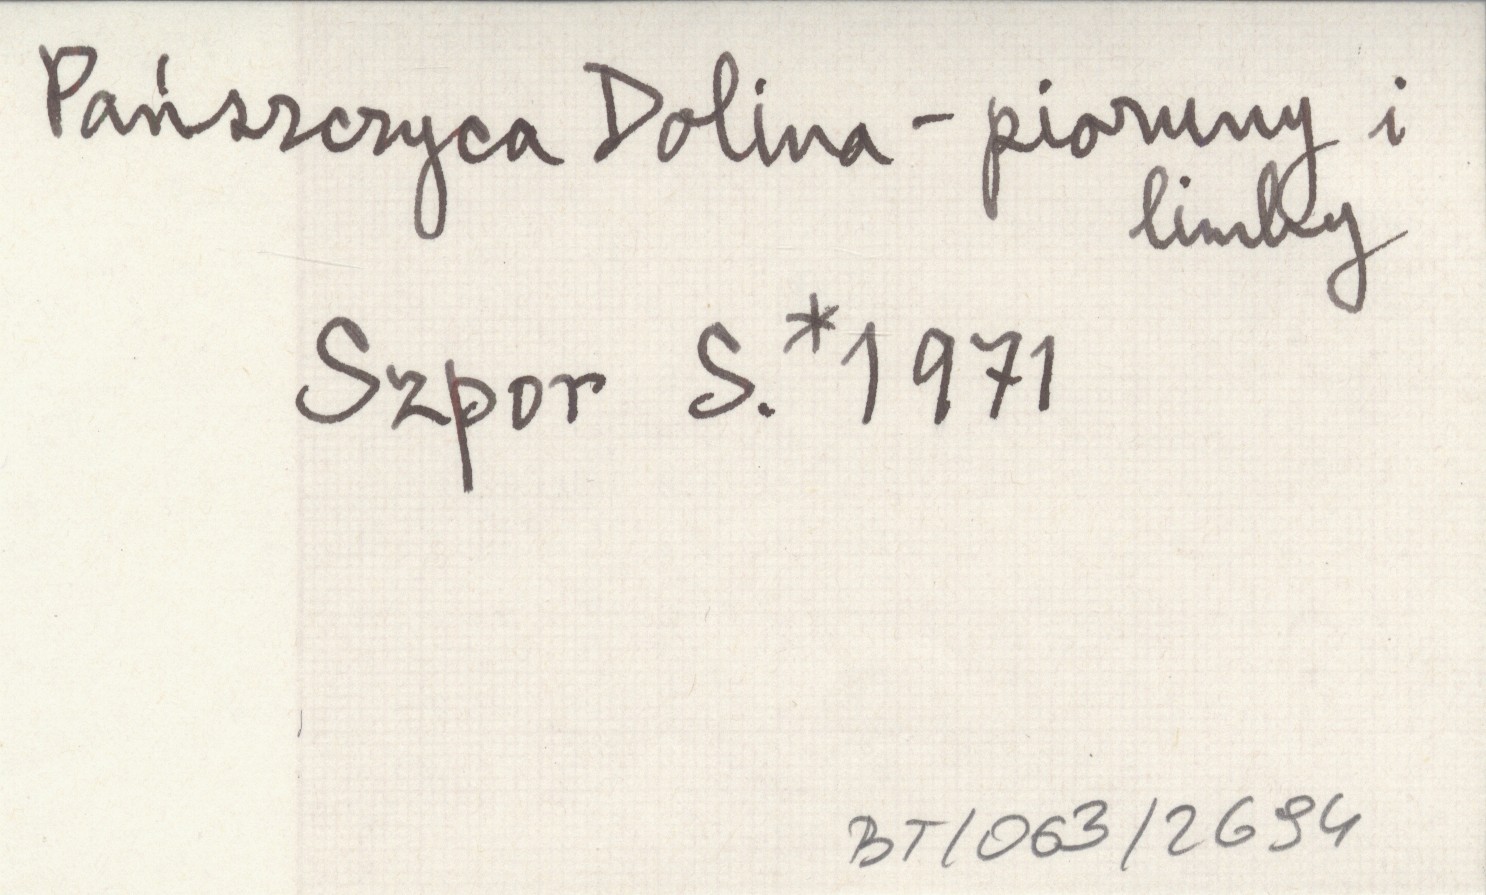 Pańszczyca Dolina - pioruny i
limby
Szpor S.*1971
BT/063/2694